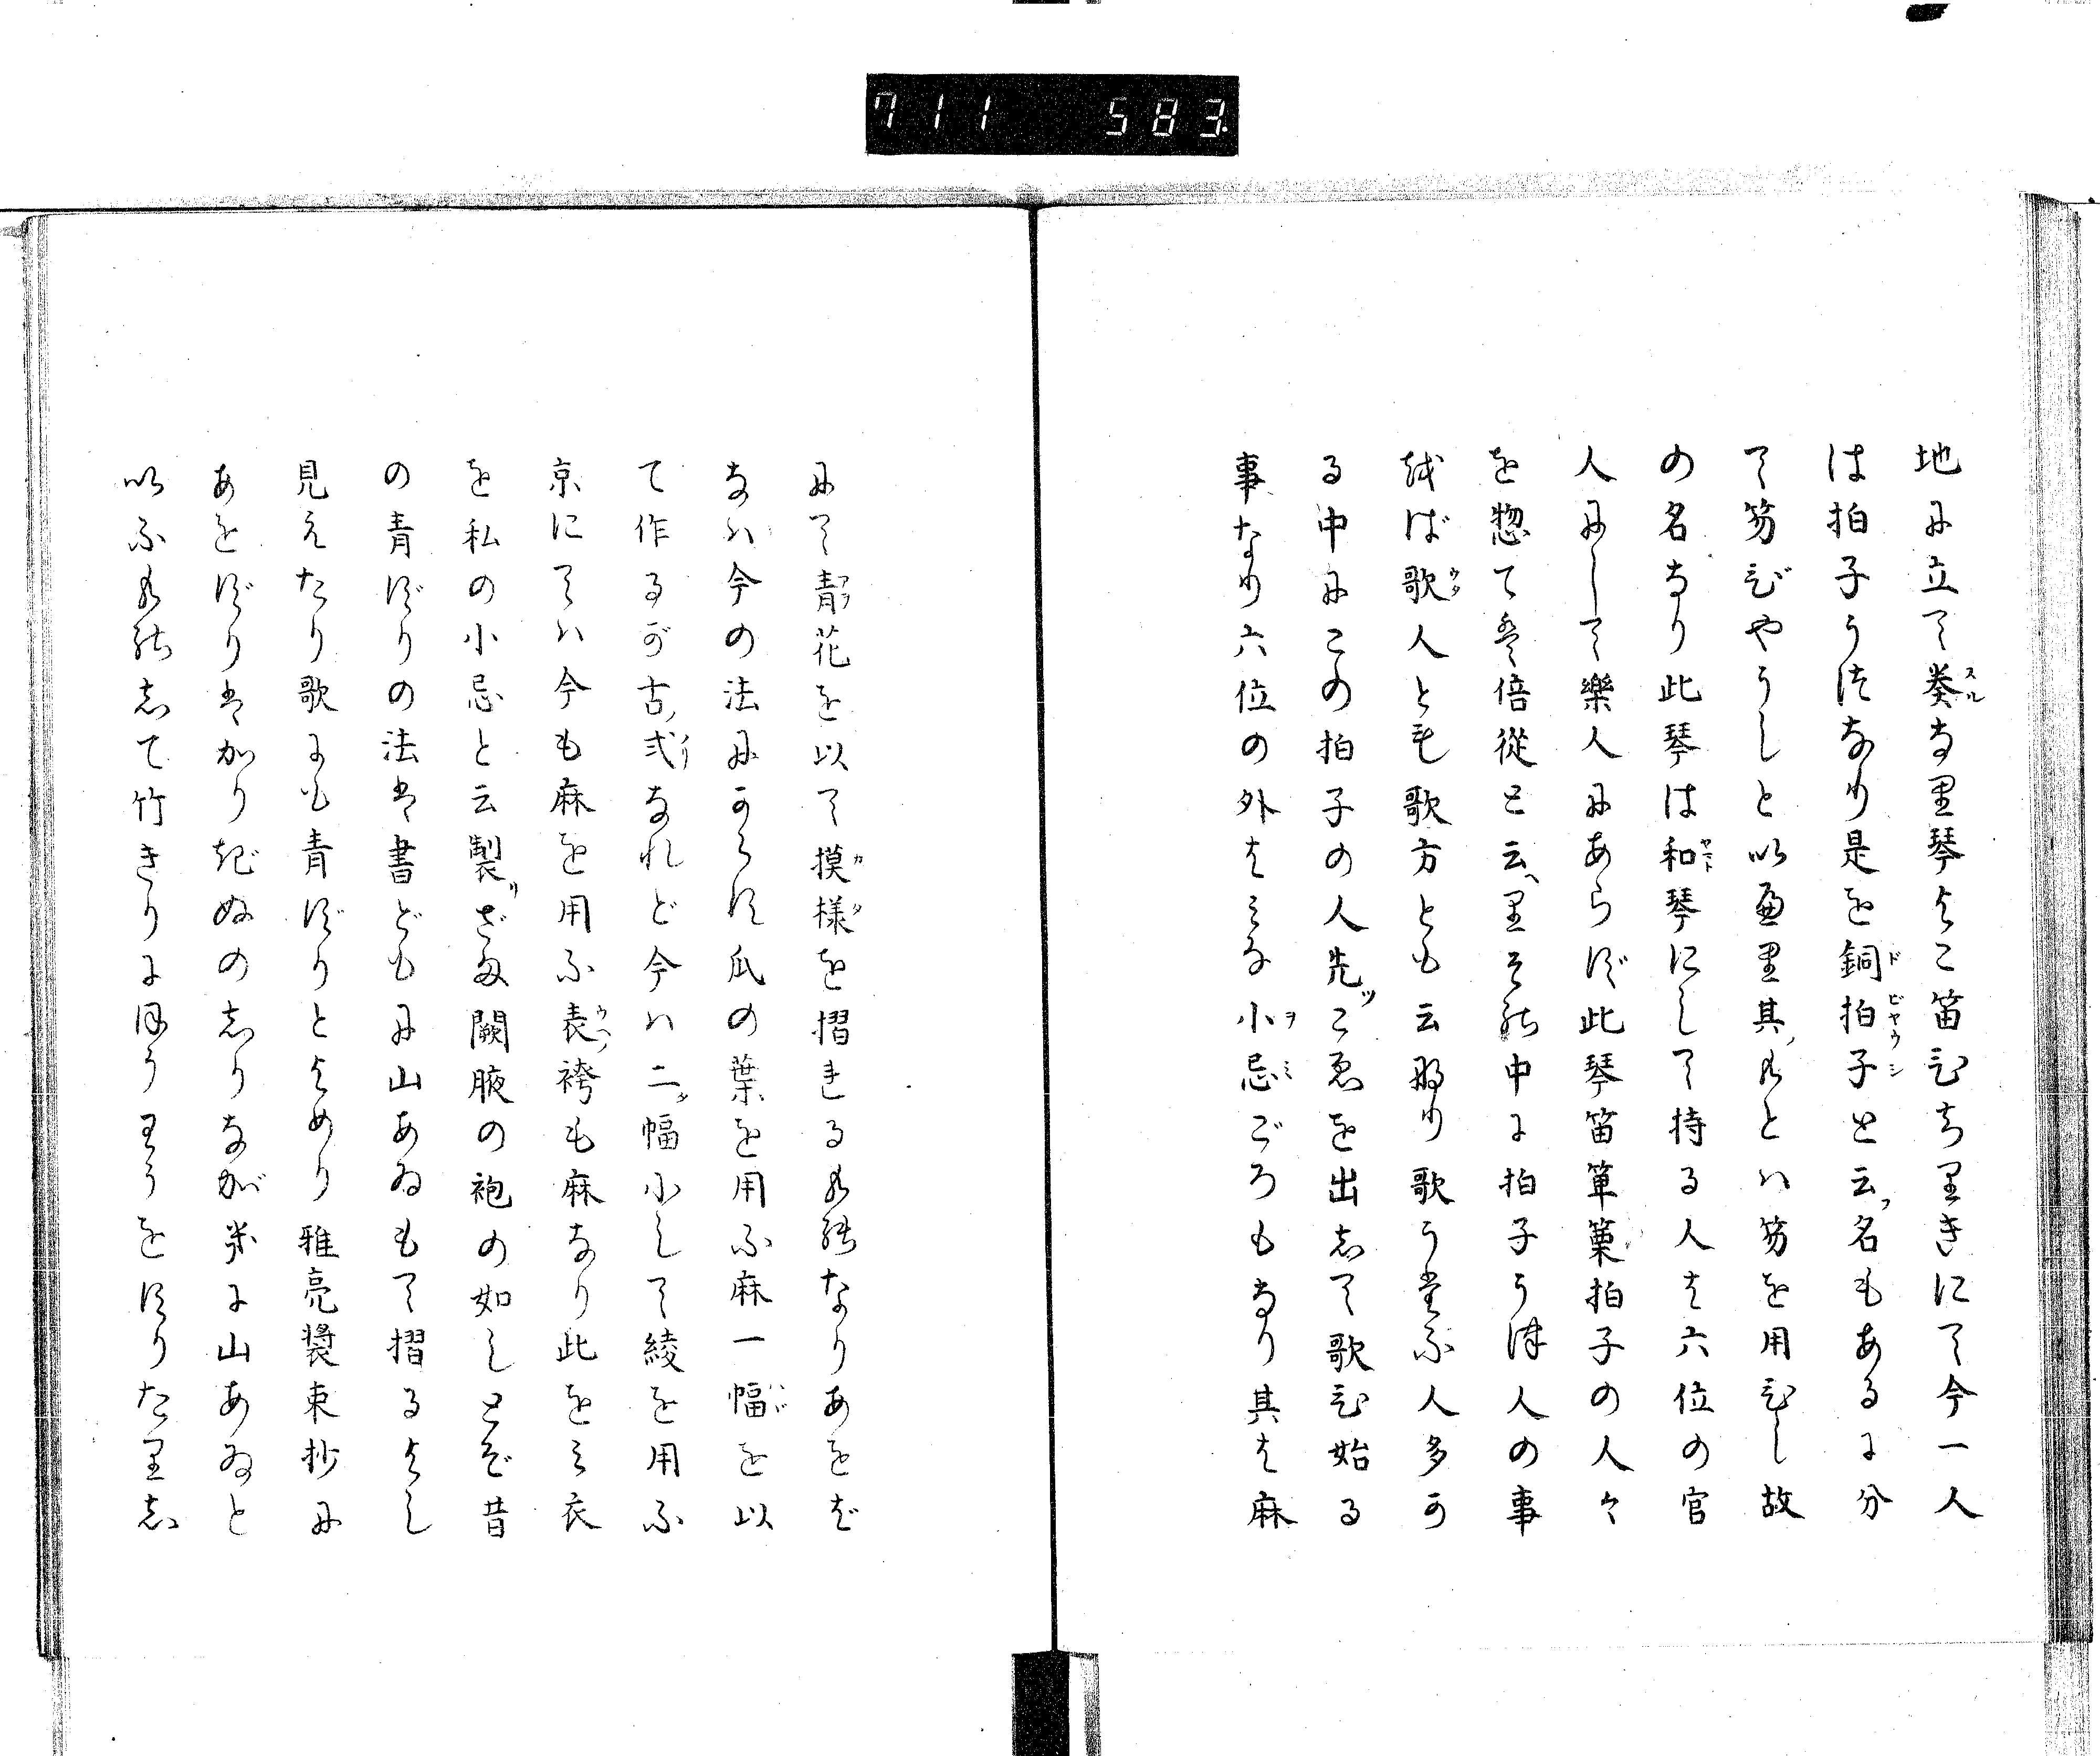 711 583
地に立て奏なり琴よこ笛ひちりきにて今一人
は拍子うつなり是を銅拍子と云名もあるに分
て笏びやうしと以へり其ものとハ笏を用ひし故
の名なり此琴は和琴にして持る人は六位の官
人にして樂人にあらず此琴笛篳篥拍子の人々
を惣て倍從と云へりその中に拍子うつ人の事
をば歌人とも歌方とも云なり歌うたふ人多か
る中にこの拍子の人先こゑを出して歌ひ始る
事なり六位の外はみな小忌ごろもなり其は麻
にて青花を以て摸様を摺れるものなりあをば
なハ今の法にからす瓜の葉を用ふ麻一幅を以
て作るが古式なれど今ハ二幅にして綾を用ふ
京にてハ今も麻を用ふ表袴も麻なり此をミ衣
を私の小忌と云製ざま闕腋の袍の如しとぞ昔
の青ずりの法は書どもに山あゐもて摺るよし
見えたり歌にも青ずりとよめり雅亮裝束抄に
あをずりはかりぎぬのしりながきに山あゐと
以ふものして竹きりにほうわうをすりたりし